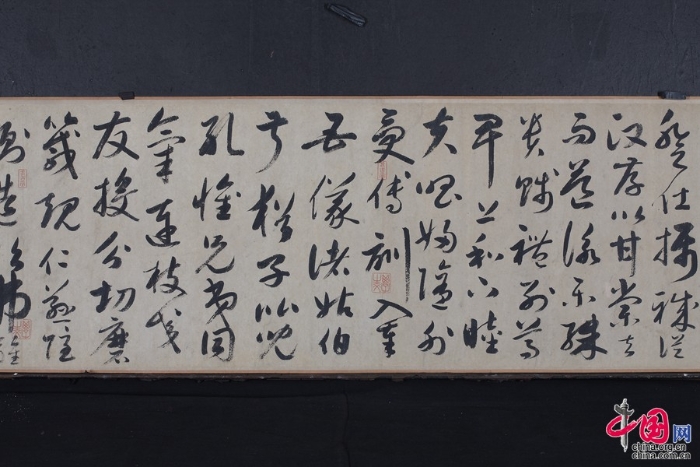 登仕攝職從
政存以甘棠去
而益詠樂殊
貴賤禮別尊
卑上和下睦
夫唱婦隨外
受傅訓入奉
母儀諸姑伯
叔猶子比兒
孔懷兄弟同
氣連枝交
友投分切磨
箴規仁慈隱
惻造次弗離
中国网
china.org.cn
china.com.cn